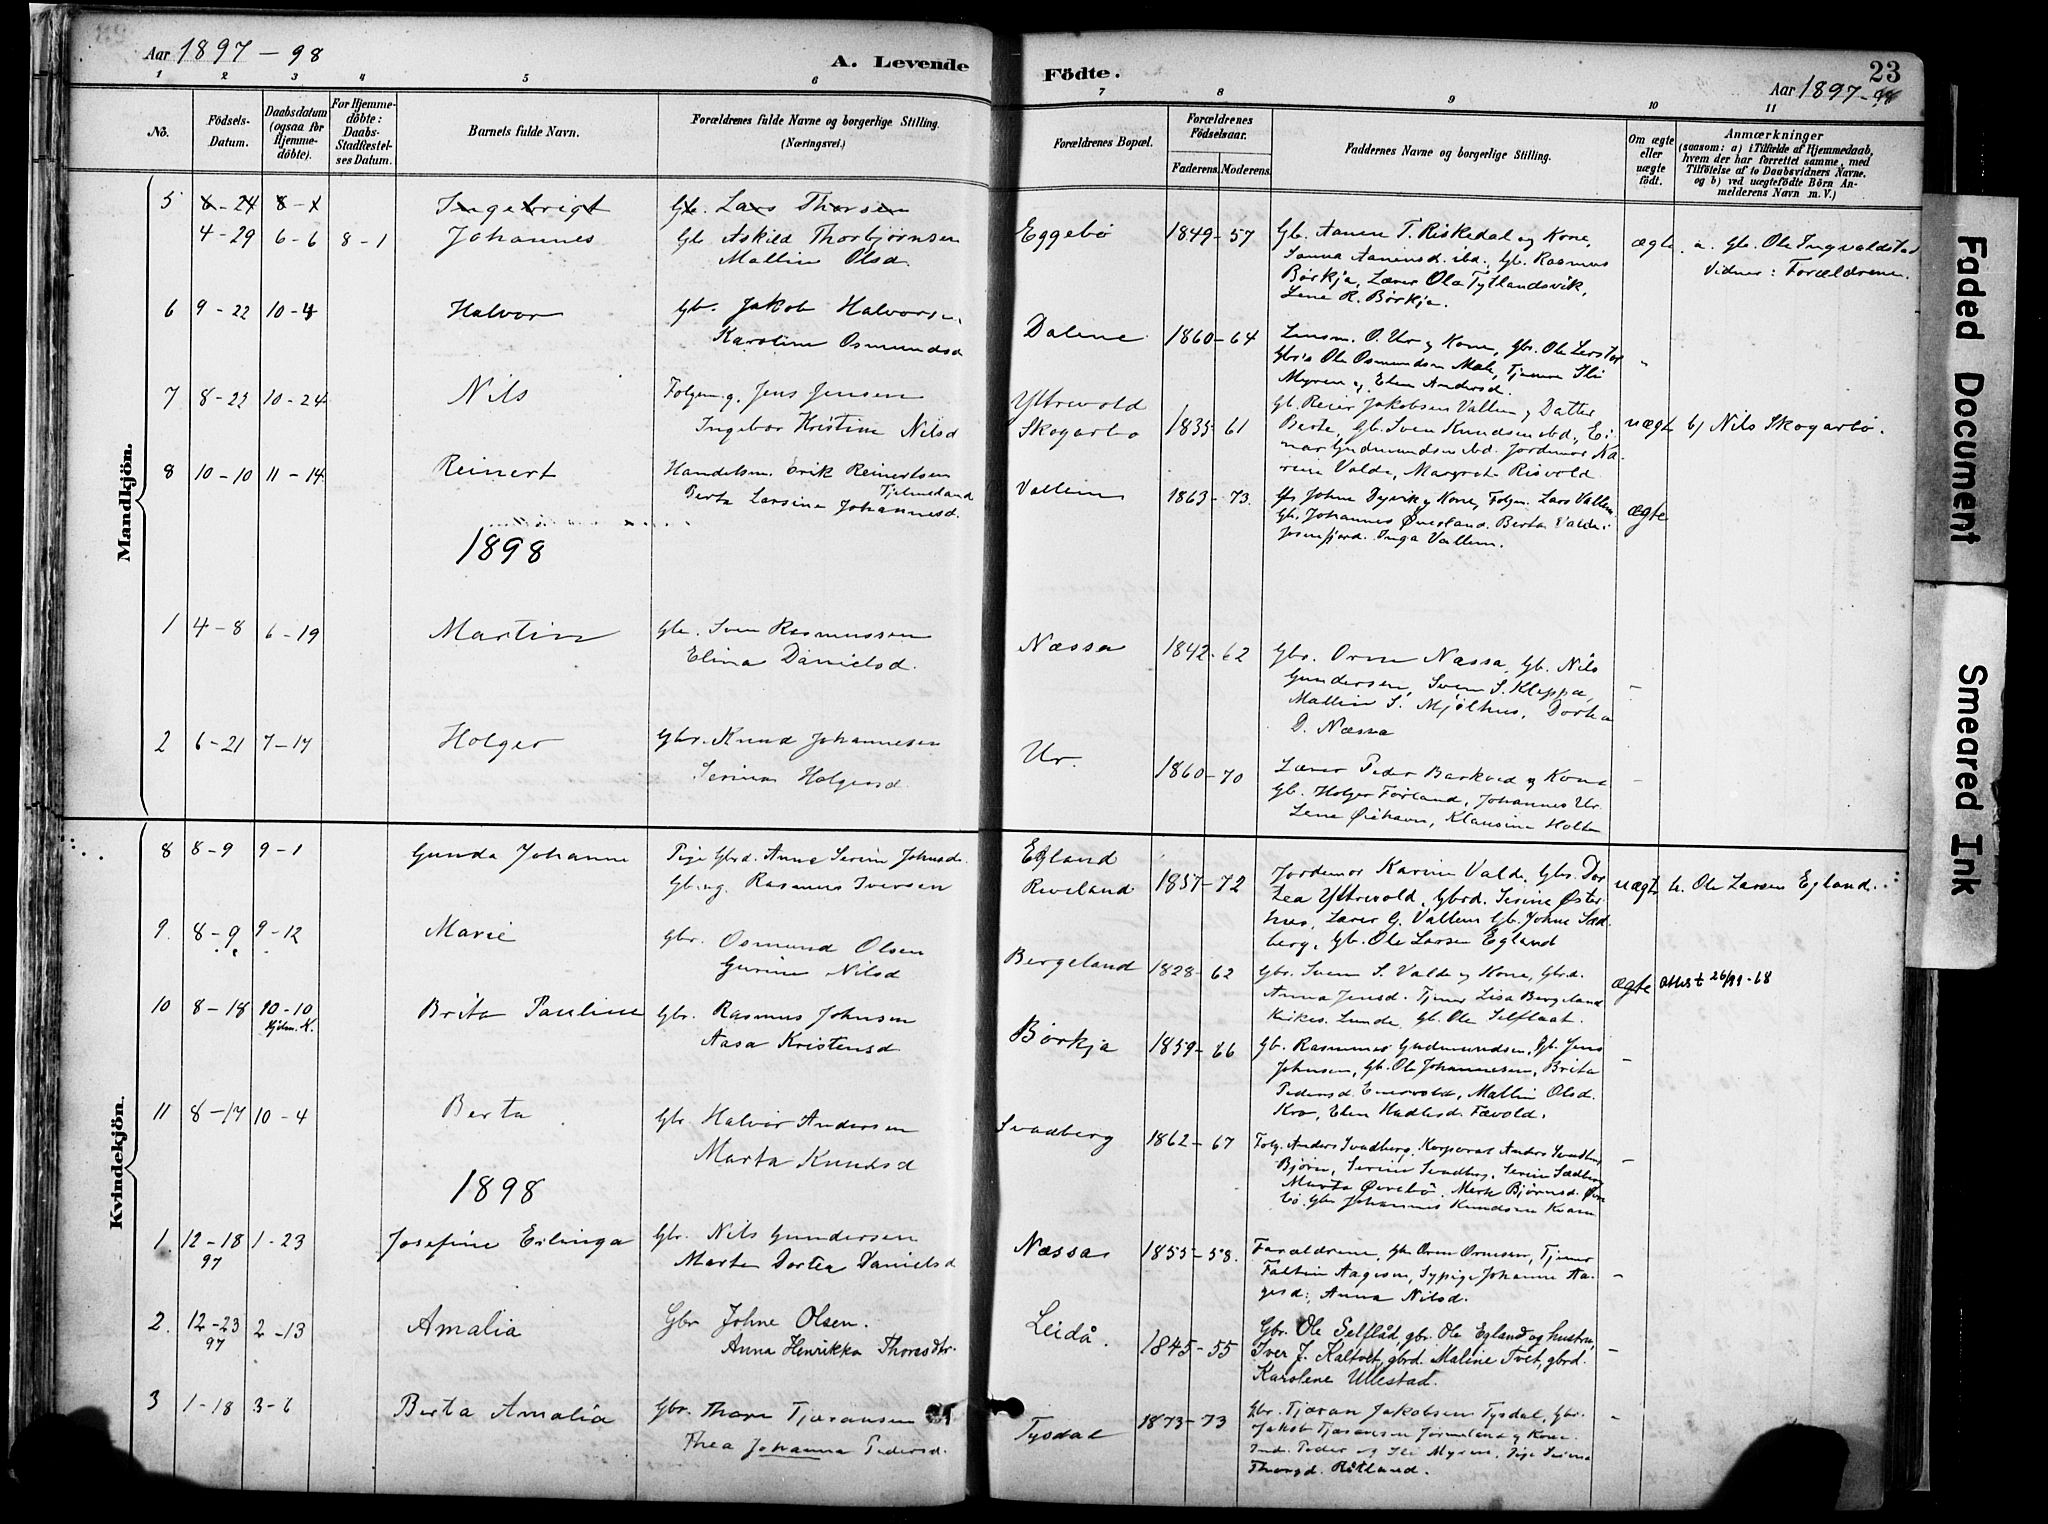 Aar 1897 - 98
A. Levende
Födte.
23
Aar 1897-98
1 2 3 4 5 6 7 8 9 10 11
No.
Födsels-Datum.
Daabsdatum (ogsaa for Hjemme-döbte).
For Hjemme-döbte: Daabs-Stadfæstel-ses Datum.
Barnets fulde Navn.
Forældrenes fulde Navne og borgerlige Stilling.
(Næringsvei.)
Forældrenes Bopæl.
Forældrenes Födselsaar.
Faderens. Moderens.
Faddernes Navne og borgerlige Stilling.
Om ægte eller uægte födt.
Anmærkninger
(saasom: a) i Tilfælde af Hjemmedaab,
hvem der har forrettet samme, med
Tilföielse af to Daabsvidners Navne.
og b) ved uægtefödte Börn An-
melderens Navn m. V.)
Mandkjön.
5 6-24 8-1 Ingebrigt Gb. Lars Thorsen
4-29 6-6 8-1 Johannes Gb. Askild Thorbjørnsen
Mallin Olsd.
Eggebø 1849-57 Gb. Aanen T. Riskedal og Kone,
Sanna Aanensd. ibd., Gb. Rasmus
Børkja, Lærer Ola Tytlandsvik,
Lene R. Børkja.
ægte a. Gb. Ole Ingvaldstad
Vidner: Forældrene.
6 9-22 10-4 Halvor Gb. Jakob Halvorsen
Karoline Osmundsd
Dalene 1860-64 Lensm. O. Ur og Kone, Gb. Ole
Ole Osmundsen Mæle, Tjener Sli
Myren og Elen Andersd.
"
7 8-22 10-24 Nils Folgem. g. Jens Jensen
Ingebor Kristine Nilsd
Yttrevold
Skogarbø 1835-61
Gb. Reier Jakobsen Vallem og Datter
Berte, Gb. Sven Knudsen ibd., Ei-
nar Gudmundsen ibd. Jordemor Ka-
rine Valde, Margrete Risvold
uægte b) Nils Skogarbø.
8 10-10 11-14 Reinert Handelsm. Erik Reinertsen
Tjelmeland
Berta Larsine Johannesd.
Vallem 1863-73 Johne Dysvik og Kone, Folgm. Lars Vallem
Gb. Johannes Øvesland. Berta Valde
Jøsenfjord. Inga Vallem.
ægte
1898
1 4-8 6-19 Martin Gb. Sven Rasmussen
Elina Danielsd.
Næssa 1842-62 Gbr. Orm Næssa, Gb. Nils
Gundersen, Sven S. Kleppa,
Mallin S. Mjølhus, Dortea
D. Næssa
-
2 6-21 7-17 Holger Gbr. Knud Johannesen
Serina Holgersd.
Ur. 1860-70 Lærer Peder Barkved og Kone
Gb. Holger Førland, Johannes Ur.
Lene Øiehavn, Klausine Holten
-
Kvindekjön.
8 8-9 9-1 Gunda Johanne Pige Gbrd. Anne Serine Johnsd.
Gb. ug. Rasmus Iversen
Egland
Riveland 1857-72
Jordemor Karine Valde. Gbr. Dor-
tea Yttrevold, Gbrd. Serine Øster-
hus, Lærer G. Vallem Gb. Johne Sad-
berg, Gb. Ole Larsen Egland
uægte b. Ole Larsen Egland.
9. 8-9 9-12 Marie Gbr. Osmund Olsen
Gurine Nilsd
Bergeland 1828-62 Gbr. Sven S. Valde og Kone, Gbrd.
Anna Jensd. Tjener Lisa Bergeland
Kirkes. Lunde, Gb. Ole Selflaat.
ægte attest 26/11-68
10 8-18 10-10
Hjelm. K.
Brita Pauline Gbr. Rasmus Johnsen
Aasa Kristensd
Børkja 1859-66 Gb. Rasmus Gudmundsen, Gb. Jens
Johnsen, Gb. Ole Johannesen, Brita
Pedersd. Enervold, Mallin Olsd.
Kro, Elen Hadlesd. Fævold.
-
11 8-17 10-4 Berta Gbr. Halvor Andersen
Marta Knudsd
Svadberg 1862-67 Folg. Anders Svadberg, Korporal Anders Svadberg
Bjørn, Serine Svadberg, Serine Sædberg
Marta Øvrebø. Mark Bjørnsd. Øvre-
bø. Gbr Johannes Knudsen Kvam
-
1898
1. 12-18
97
1-23 Josefine Erlinga Gbr. Nils Gundersen
Marta Dortea Danielsd
Næssa 1855-58. Forældrene, Gb. Orm Ormsen, Tjener
Faltin Aagesen, Sypige Johanne Aa-
gesd., Anna Nilsd.
-
2. 12-23
97
2-13 Amalia Gbr Johne Olsen.
Anna Henrikka Thoresdtr.
Leidå. 1845-55 Gbr. Ole Selflåd, gbr. Ole Egland og hustru,
Iver J. Kaltvet, gbrd. Maline Tvet, gbrd.
Karolene Ullestad.
-
3 1-18 3-6 Berta Amalia Gbr. Thore Tjæransen
Thea Johanna Pedersd.
Tysdal 1873-73 Gbr. Tjæran Jakobsen Tysdal, Gbr.
Jakob Tjæransen Jørmeland og Kone
Ind. Peder og Sli Myren, Pige Seina
Thorgd. Ritland.
"
Faded Document
Smeared Ink